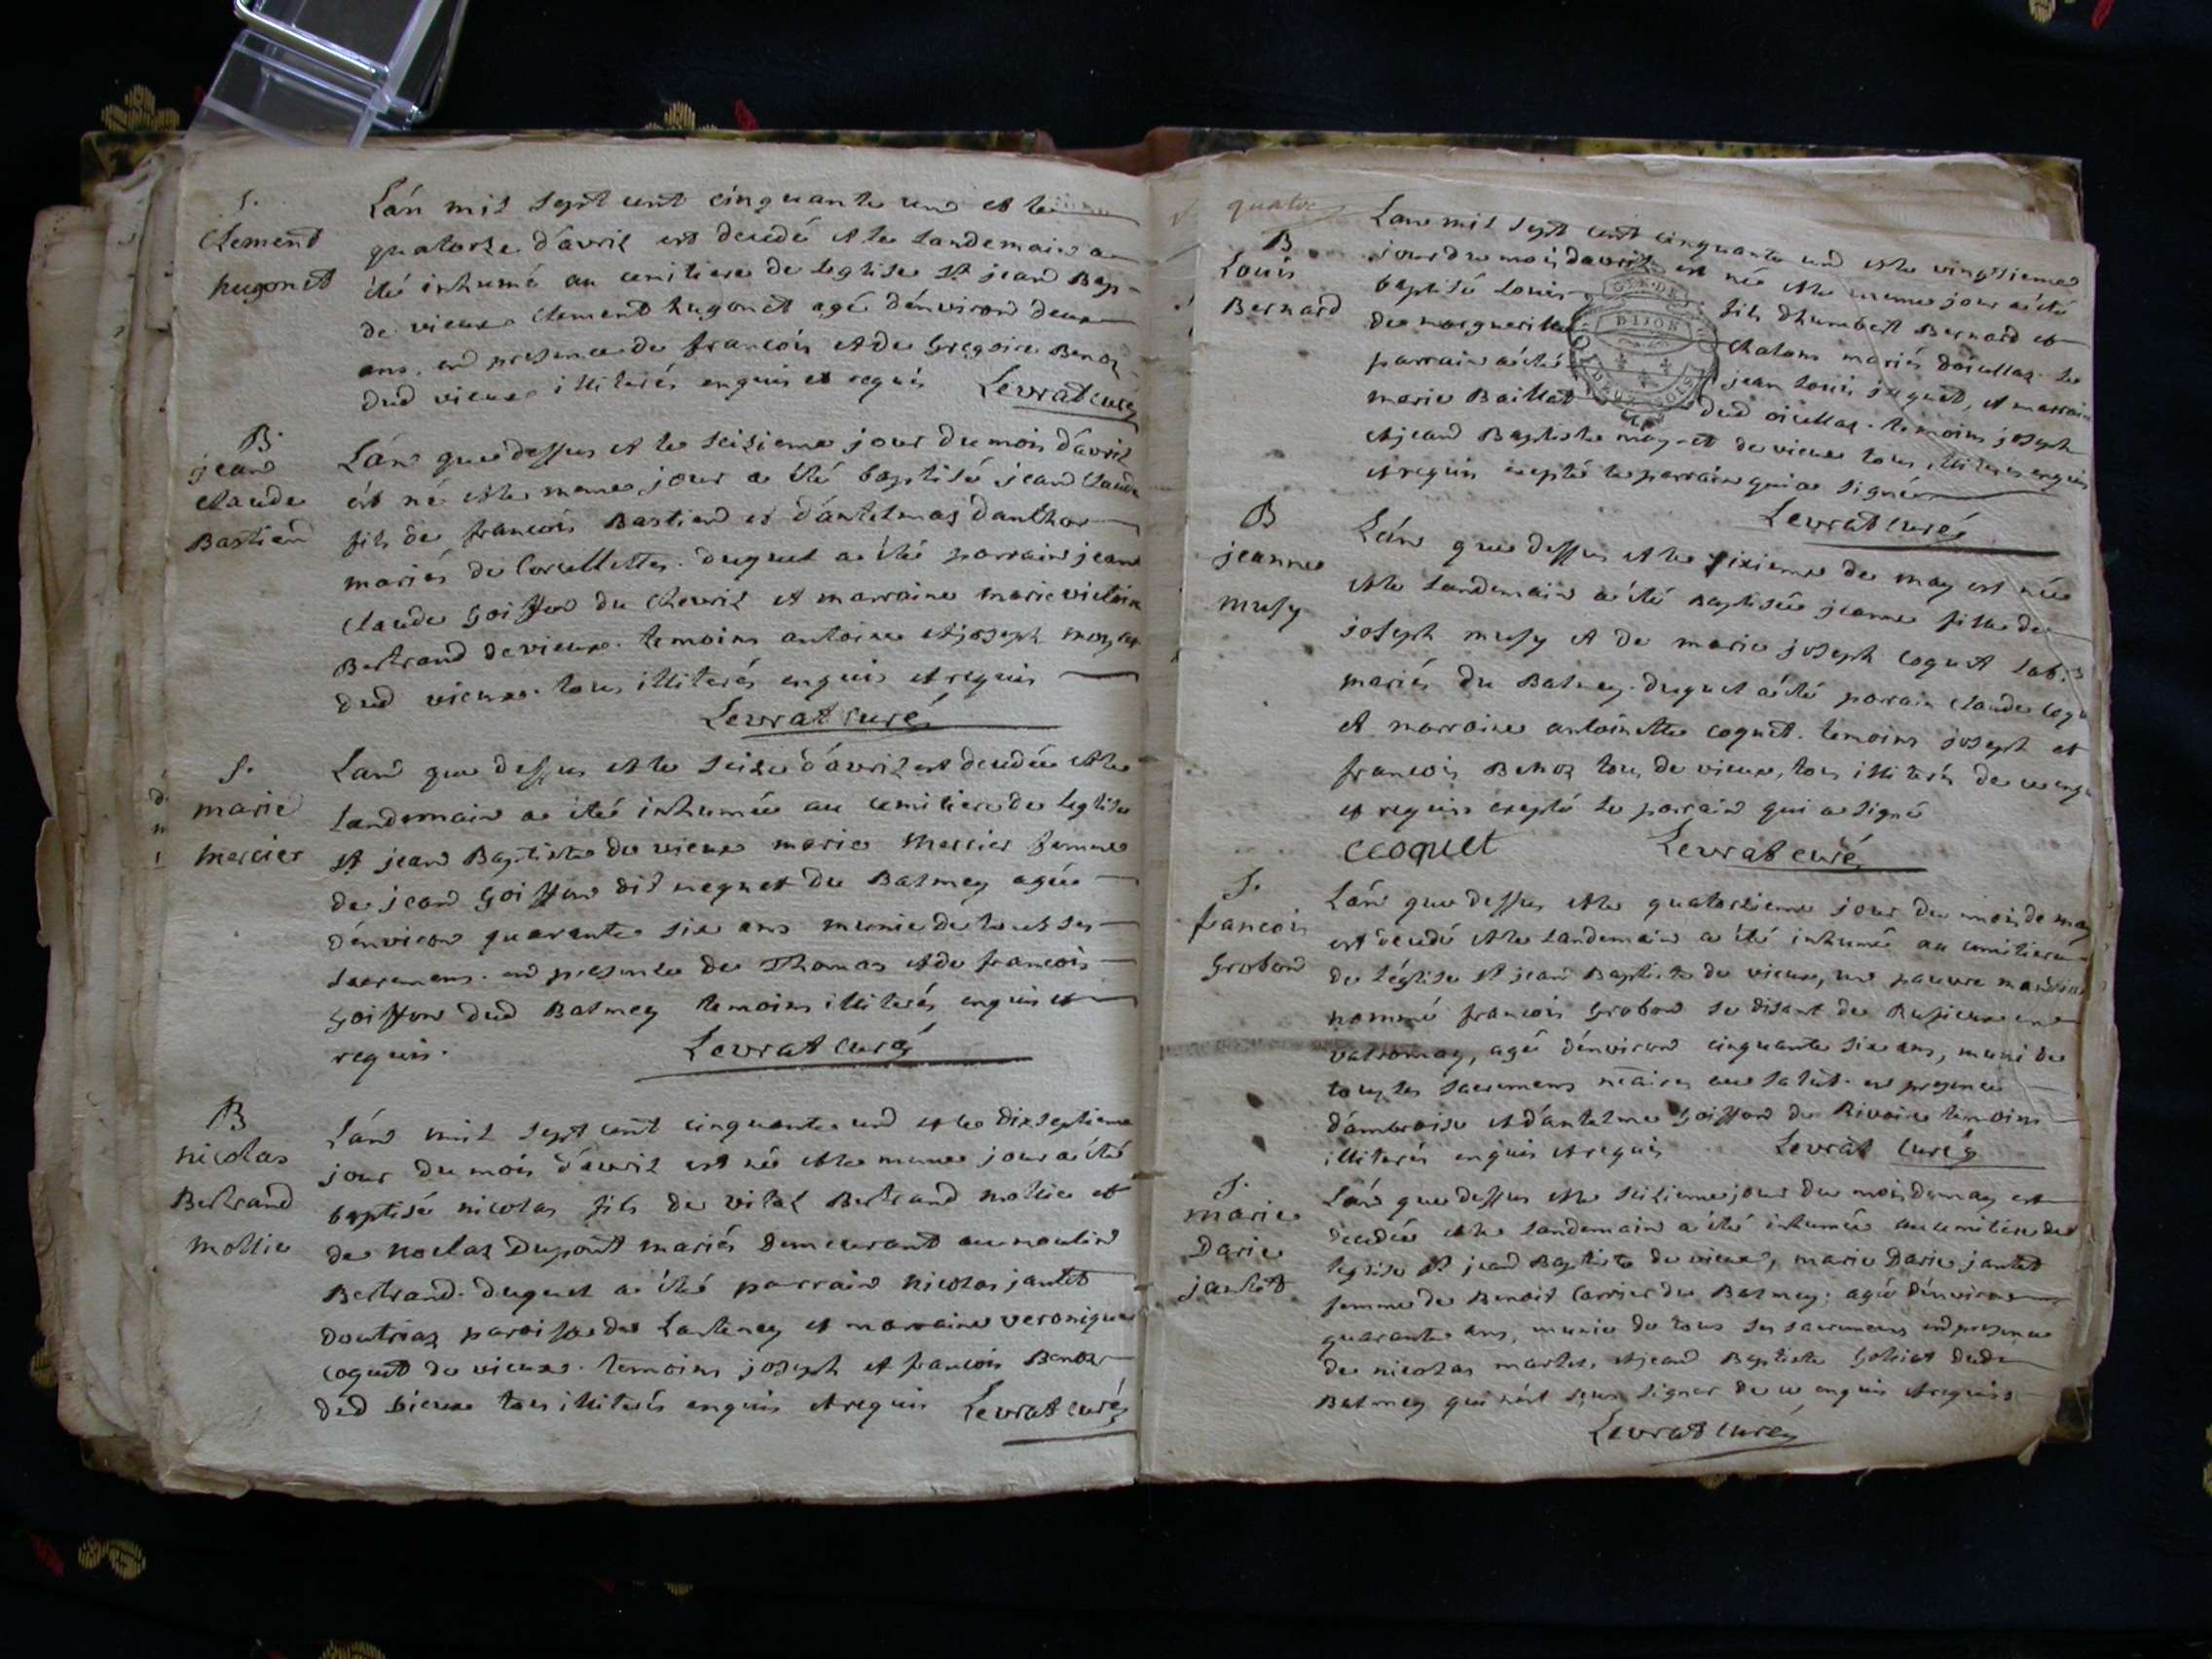 S.
Clement
hugonet
Lán mil sept cent cinquante un et le
quatorze d'avril est decedé et le landemain a
été inhumé au cemitiere de leglise St jean Bap-
de vieux Clement hugonet agé d'environ deux
ans. en presence de francois et de Gregoire Benoz
dud vieux illiterés enquis et requis Levrat curé
B.
jean
claude
Bastien
Lán que dessus et le seizieme jour du mois d'avril
ést né et le meme jour a été baptisé jean Claude
fils de francois Bastien et d'antelmaz danthon
mariés de Corcellettes. duquel a été parrain jean
claude Goiffon du Chevril et marraine marie
Bertrand de vieux. temoins antoine et joseph
dud vieux. tous illiterés enquis et requis
Levrat curé
S.
marie
mercier
Lan que dessus et le seize d'avril est decedée et le
landemain a été inhumée au cemitiere de leglise
St jean Baptiste de vieux marie Mercier femme
de jean Goiffon dit du Balmey agée
d'environ quarante six ans munie de tous ses
sacremens. en presence de Thomas et de francois
Goiffon dud Balmey temoins illiterés enquis et
requis. Levrat curé
B
nicolas
Bertrand
mollie
Lán mil sept cent cinquante un et le dixseptieme
jour du mois d'avril est né et le meme jour a été
baptisé nicolas fils de vital Bertrand mollie et
de Dupont mariés demeurant au moulin
Bertrand. duquel a été parrain nicolas jantet
doutriaz paroisse de Lanteney et marraine veronique
coquet de vieux. temoins joseph et francois Benoz
dud vieux tous illiterés enquis et requis Levrat curé
quatre
B
Louis
Bernard
Lan mil sept cent cinquante un et le vingtieme
jour du mois davril est né et le meme jour a été
baptisé Louis fils dhumbert Bernard et
de marguerite Chatom mariés doicullaz. le
parrain a été jean louis juquet, et marraine
marie Baillat dud oicullaz. temoins joseph
et jean Baptiste de vieux tous illiterés enquis
et requis excepté le parrain qui a signé
Levrat curé
GEN. DE
DIJON
B
jeanne
musy
Lán que dessus et le sixieme de may est née
et le landemain a été Baptisée jeanne fille de
joseph musy et de marie joseph coquet lab.
mariés du Balmey. duquel a été parrain claude
et marraine antoinette coquet. temoins joseph et
francois Benoz tous de vieux, tous illiterés de ce
et requis excepté le parrain qui a signé
ccoquet Levrat curé
S.
francois
Grobon
Lán que dessus et le quatorzieme jour du mois de may
est decedé et le landemain a été inhumé au cemitiere
de l'église St jean Baptiste de vieux, un pauvre
nommé francois Grobon se disant de en
valromay, agé d'environ cinquante six ans, muni de
tous les sacremens au salut. en presence
d'ambroise et d'antelme Goiffon de Rivoire temoins
illiterés enquis et requis Levrat curé
S.
marie
Darie
jantet
Lán que dessus et le seizieme jour du mois de may est
decedée et le landemain a été inhumée au cemitiere de
leglise St jean Baptiste de vieux, marie Darie jantet
femme de Benoit Carrier du Balmey. agée d'environ
quarante ans, munie de tous ses sacremens en presence
de nicolas et jean Baptiste Golliat dud
Balmey qui n'ont sçeu signer de ce enquis et requis
Levrat curé